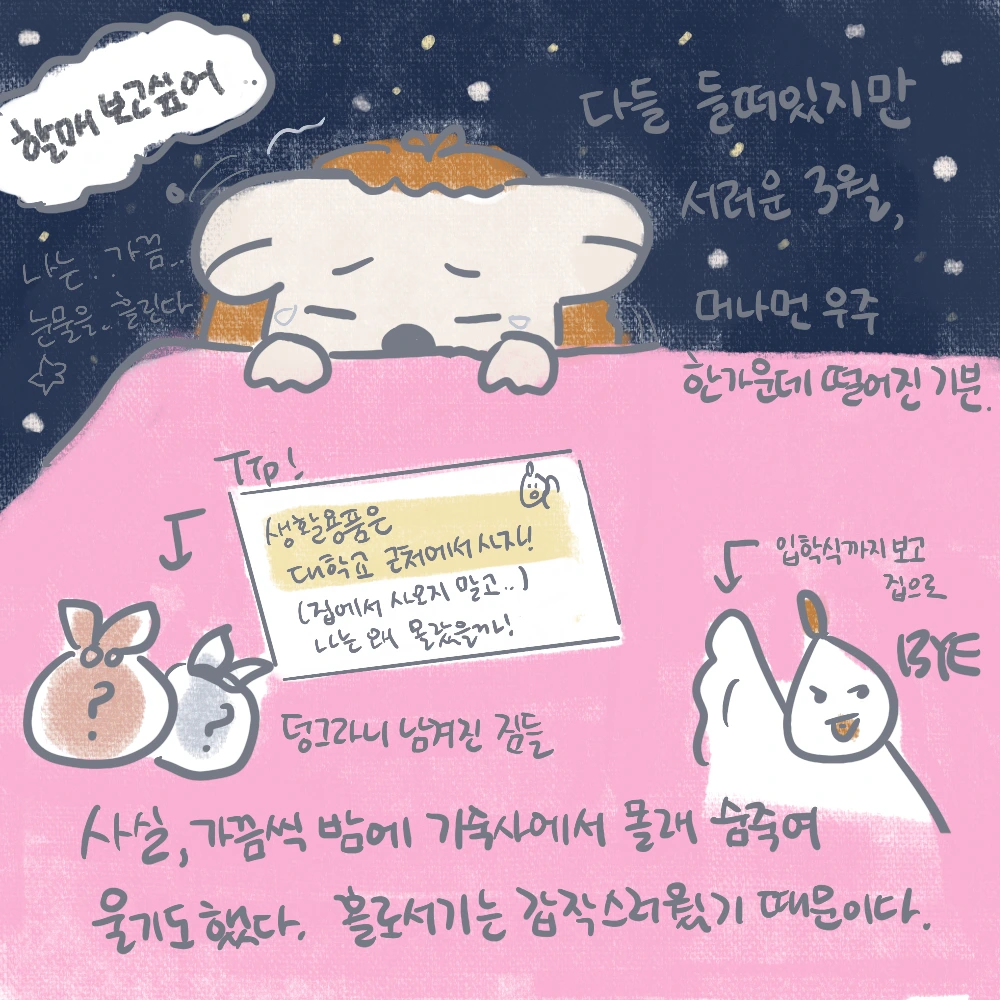 할매 보고싶어..
다들 들떠있지만
서러운 3월,
머나먼 우주
한가운데 떨어진 기분.
나는.. 가끔..
눈물을.. 흘린다
TIP!
생활용품은
대학교 근처에서 사자!
(집에서 사오지 말고..)
나는 왜 몰랐을까!
입학식까지 보고
집으로
BYE
?
?
덩그라니 남겨진 짐들
사실, 가끔씩 밤에 기숙사에서 몰래 숨죽여
울기도 했다. 홀로서기는 갑작스러웠기 때문이다.